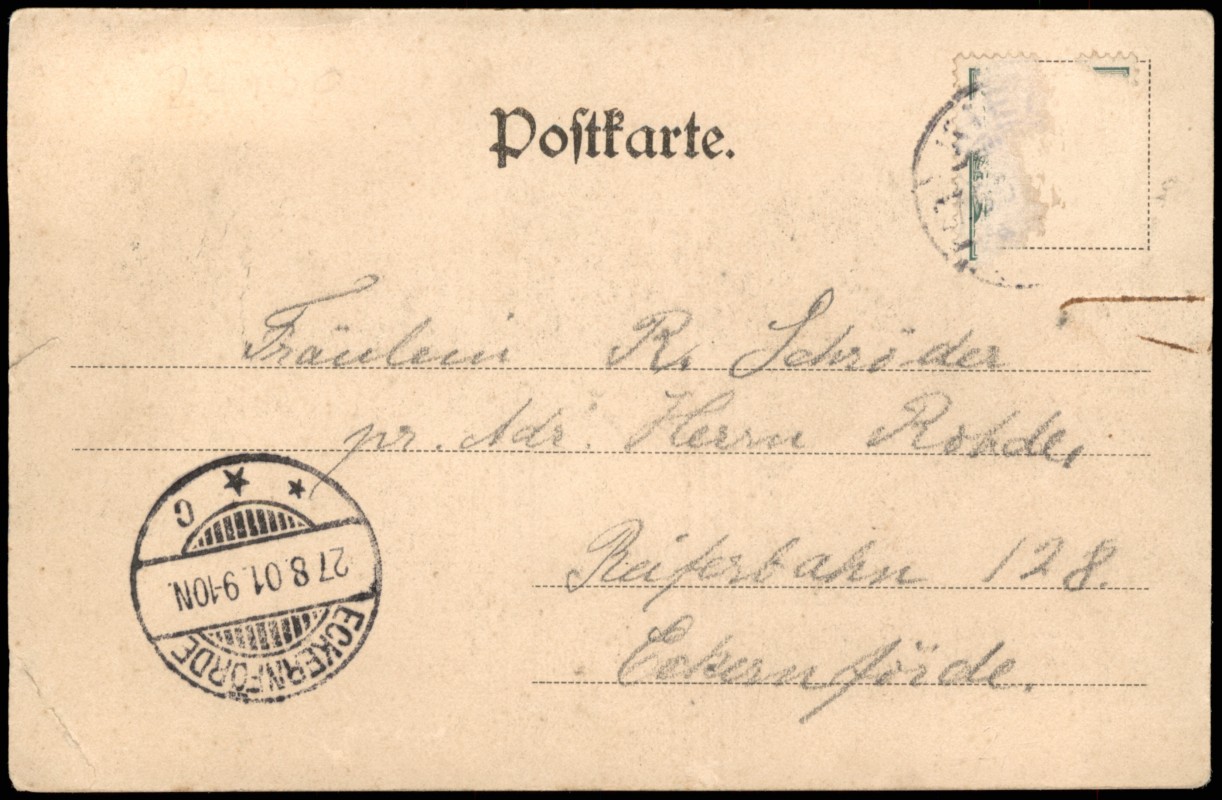 Postkarte.
Fräulein R. Schröder
pr. Adr. Herrn Rohde,
Reiferbahn 128.
Eckernförde.
ECKERNFÖRDE
27 8.01.9-10N.
* * C